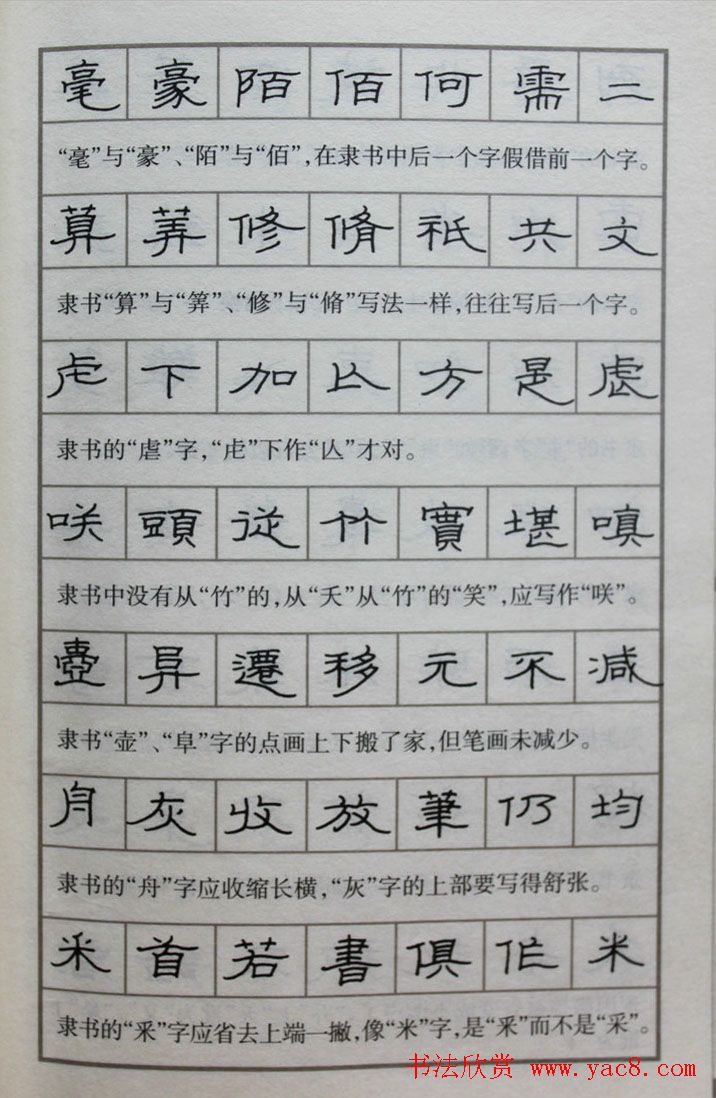 毫豪陌佰何需二
“毫”与“豪”、“陌”与“佰”,在隶书中后一个字假借前一个字。
算筭修脩祇共文
隶书“算”与“筭”、“修”与“脩”写法一样,往往写后一个字。
虍下加亾方是虐
隶书的“虐”字,“虍”下作“亾”才对。
咲頭從竹實堪嗔
隶书中没有从“竹”的,从“夭”从“竹”的“笑”,应写作“咲”。
壺㫷遷移元不减
隶书“壶”、“阜”字的点画上下搬了家,但笔画未减少。
舟灰收放筆仍均
隶书的“舟”字应收缩长横,“灰”字的上部要写得舒张。
釆首若書俱作米
隶书的“釆”字应省去上端一撇,像“米”字,是“釆”而不是“采”。
书法欣赏 www.yac8.com